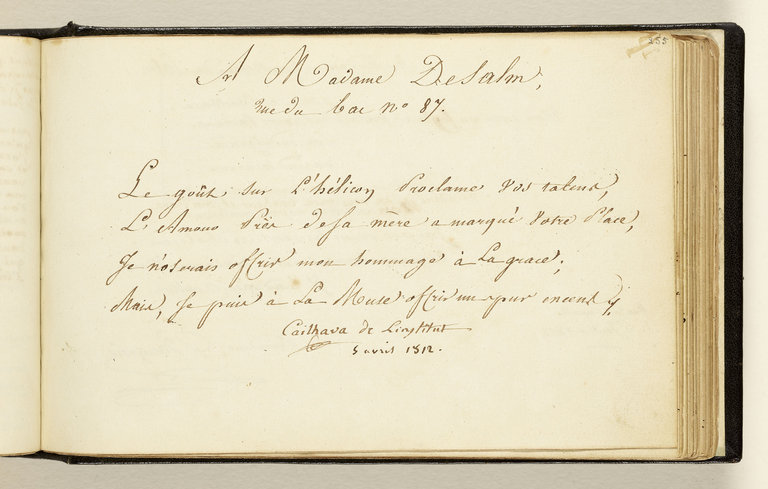 255
A Madame DeSalm,
rue du bac no 87.
Le goût sur L'hélicon Proclame Vos talens,
L'Amour Près de sa mère a marqué Votre Place,
Je n'oserais offrir mon hommage à La grace;
Mais, je puis à La Muse offrir un pur encens
Cailhava de L'institut
5 avril 1812.